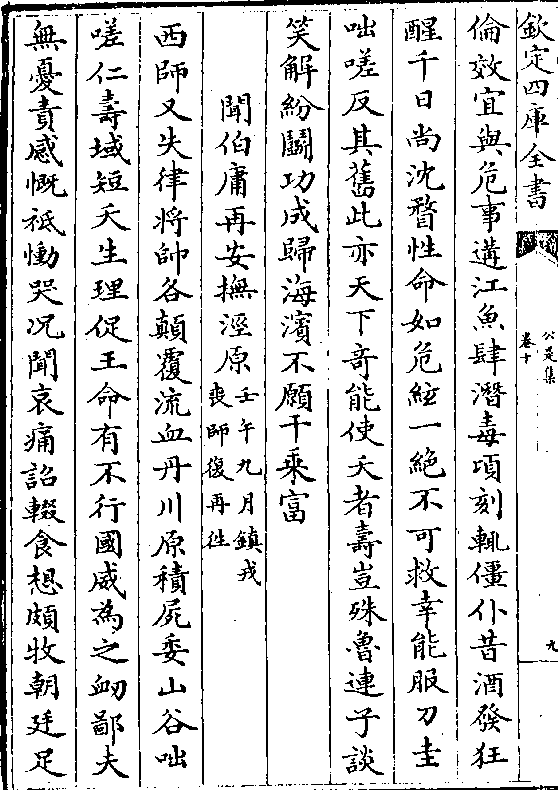 欽定四庫全書
公是集
卷十
九
倫效宜與危事遘江魚肆潛毒項刻輒僵仆昔酒發狂
醒千日尚沈瞀性命如危絃一絶不可救幸能服刀圭
咄嗟反其舊此亦天下竒能使夭者壽豈殊魯連子談
笑解紛鬬功成歸海濱不願千乗富
聞伯庸再安撫涇原壬午九月鎮戎喪師復再徃
西師又失律将帥各顛覆流血丹川原積屍委山谷咄
嗟仁壽域短夭生理促王命有不行國威為之衂鄙夫
無憂責感慨祗慟哭况聞哀痛詔輟食想頗牧朝廷足